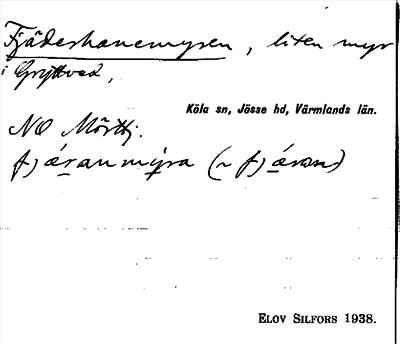 Fjäderhanemyren, liten myr
i Gryttved,
Köla sn, Jösse hd, Värmlands län.
NO Mörttj.
fjäranmyra (~ fjäran)
ELOV SILFORS 1938.